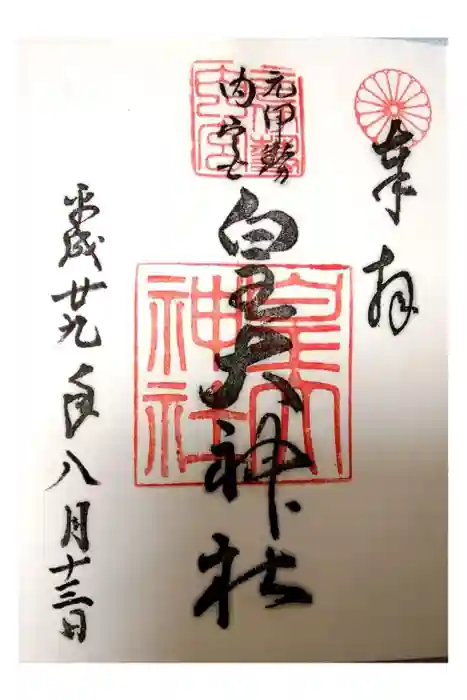 奉拝
元伊勢
内宮
皇大神社
皇大神社
平成廿九年八月十三日